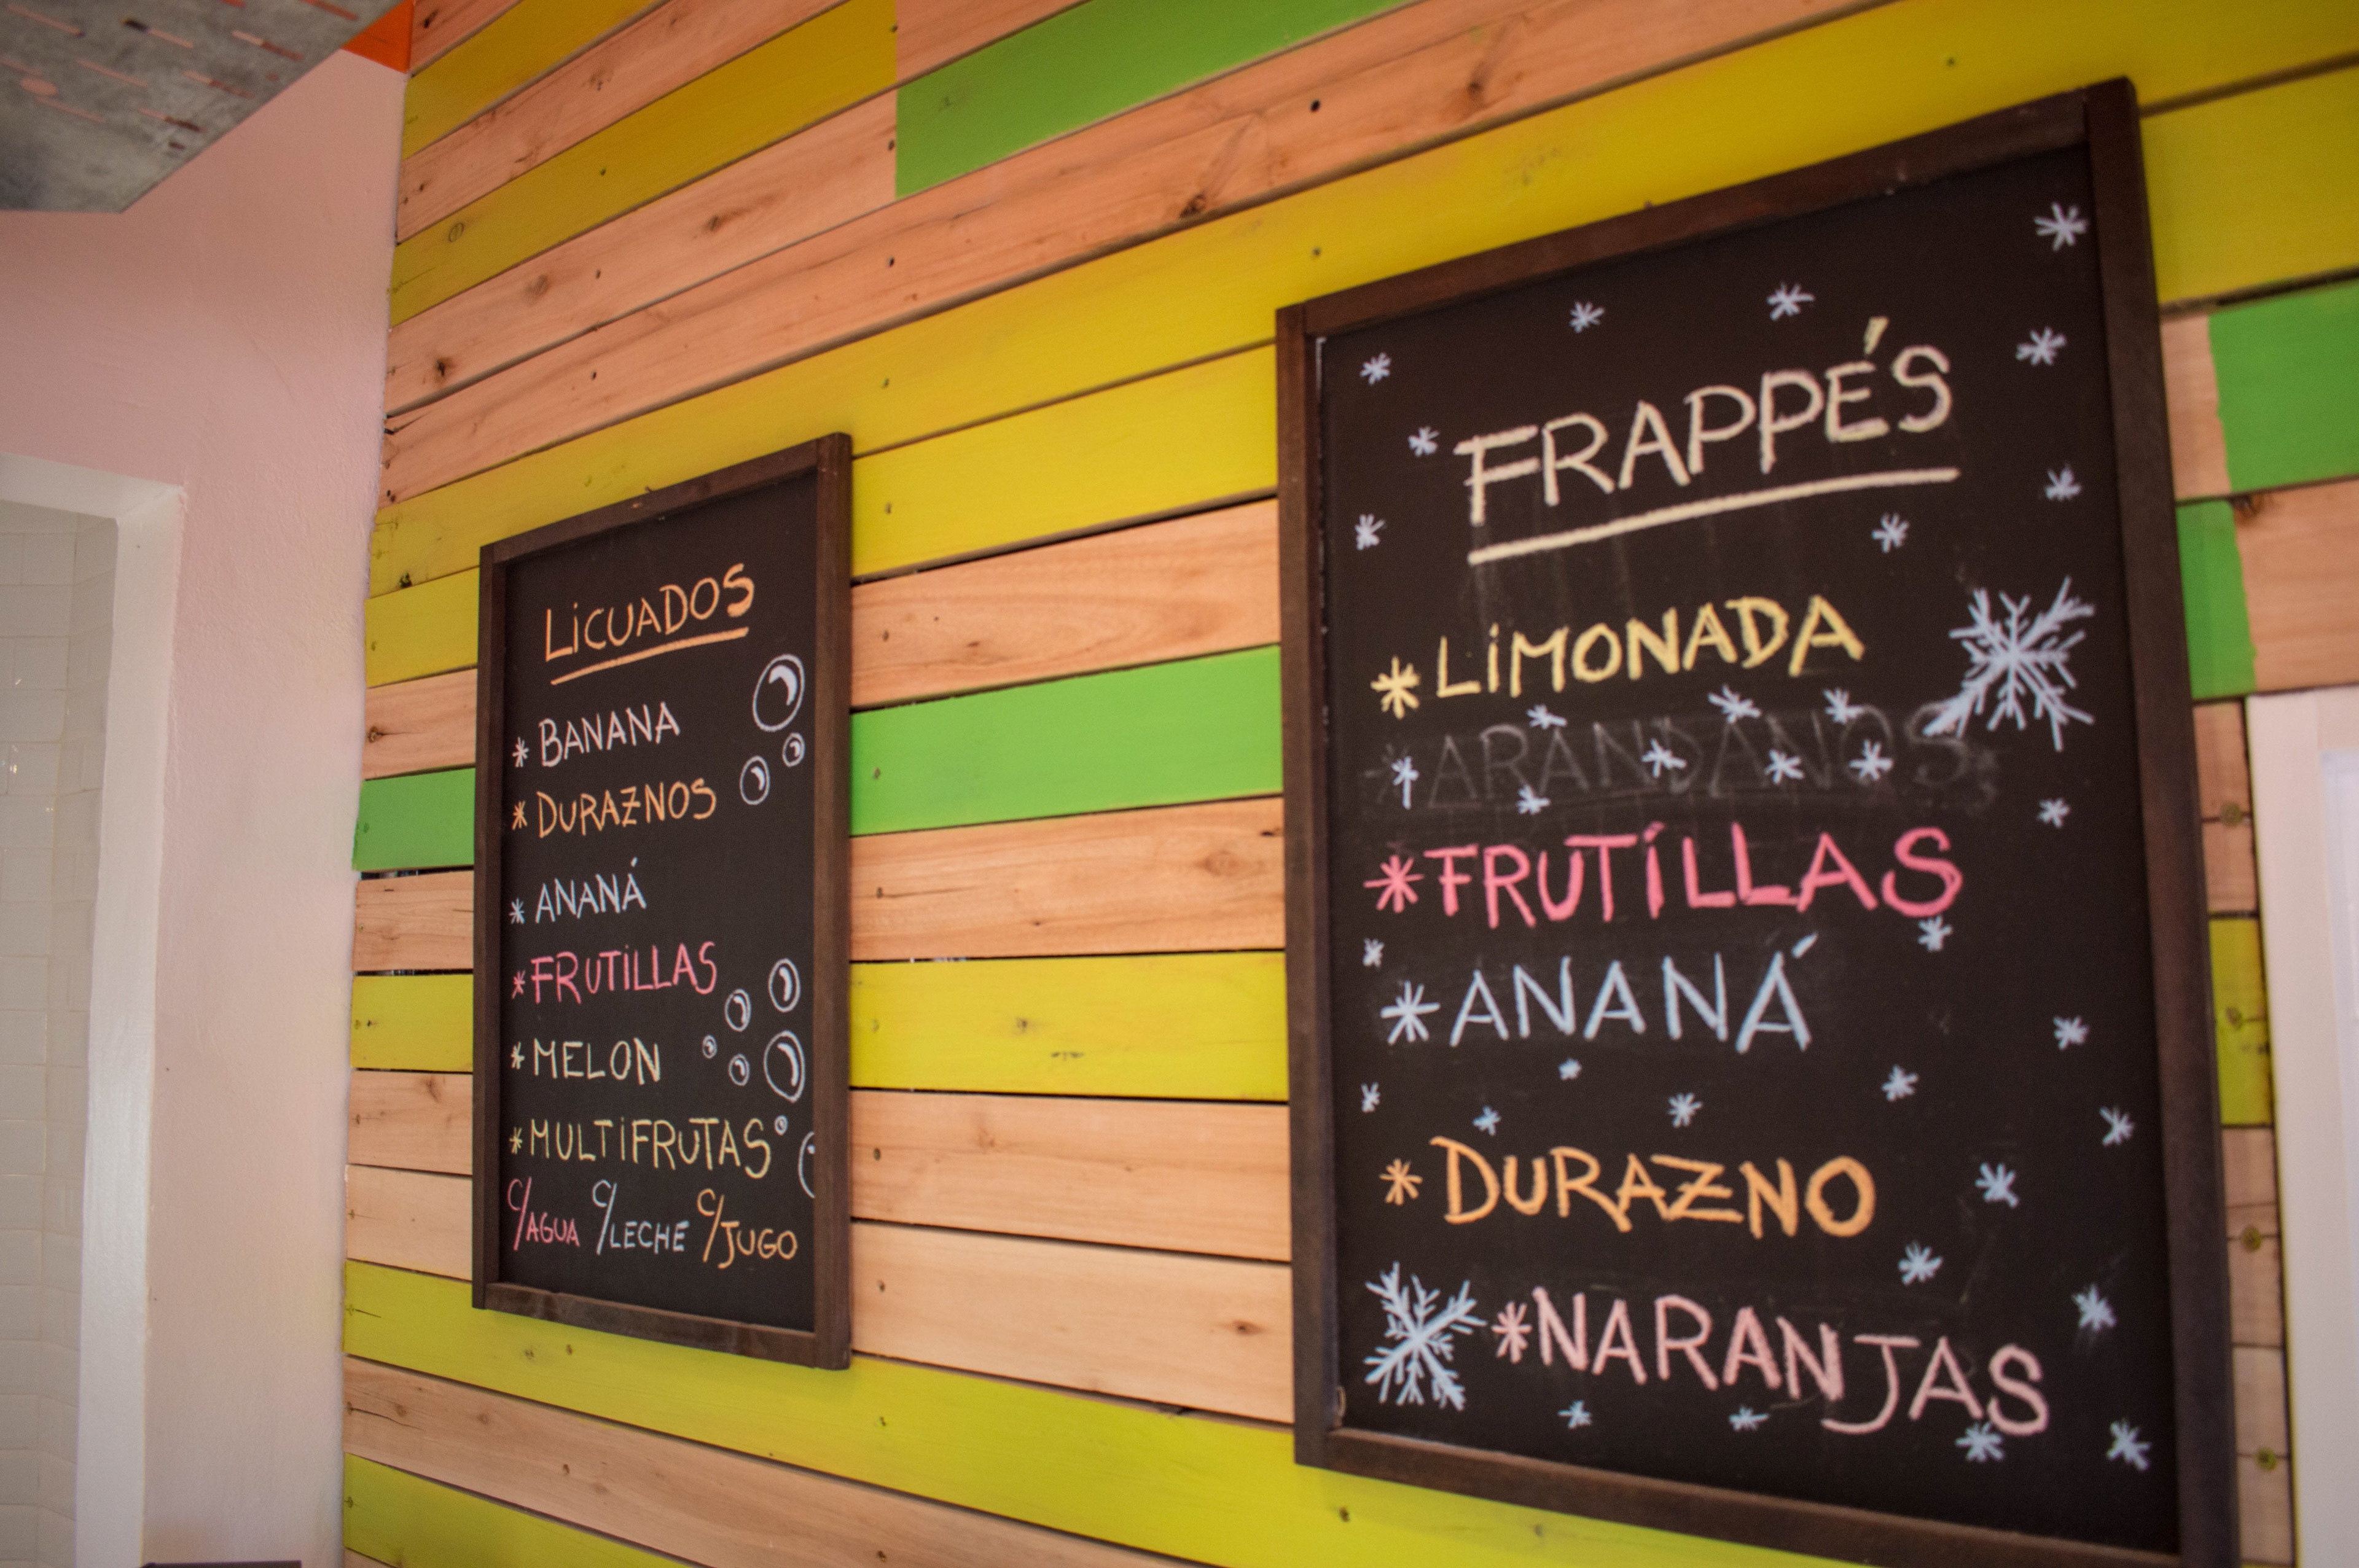 LiCUADOS
* BANANA
* DURAZNOS
* ANANÁ
* FRUTiLLAS
* MELON
* MULTiFRUTAS
C/AGUA C/LECHE C/JUGO
FRAPPÉS
* LiMONADA
* ARANDANOS
* FRUTíLLAS
* ANANÁ
* DURAZNO
* NARANJAS